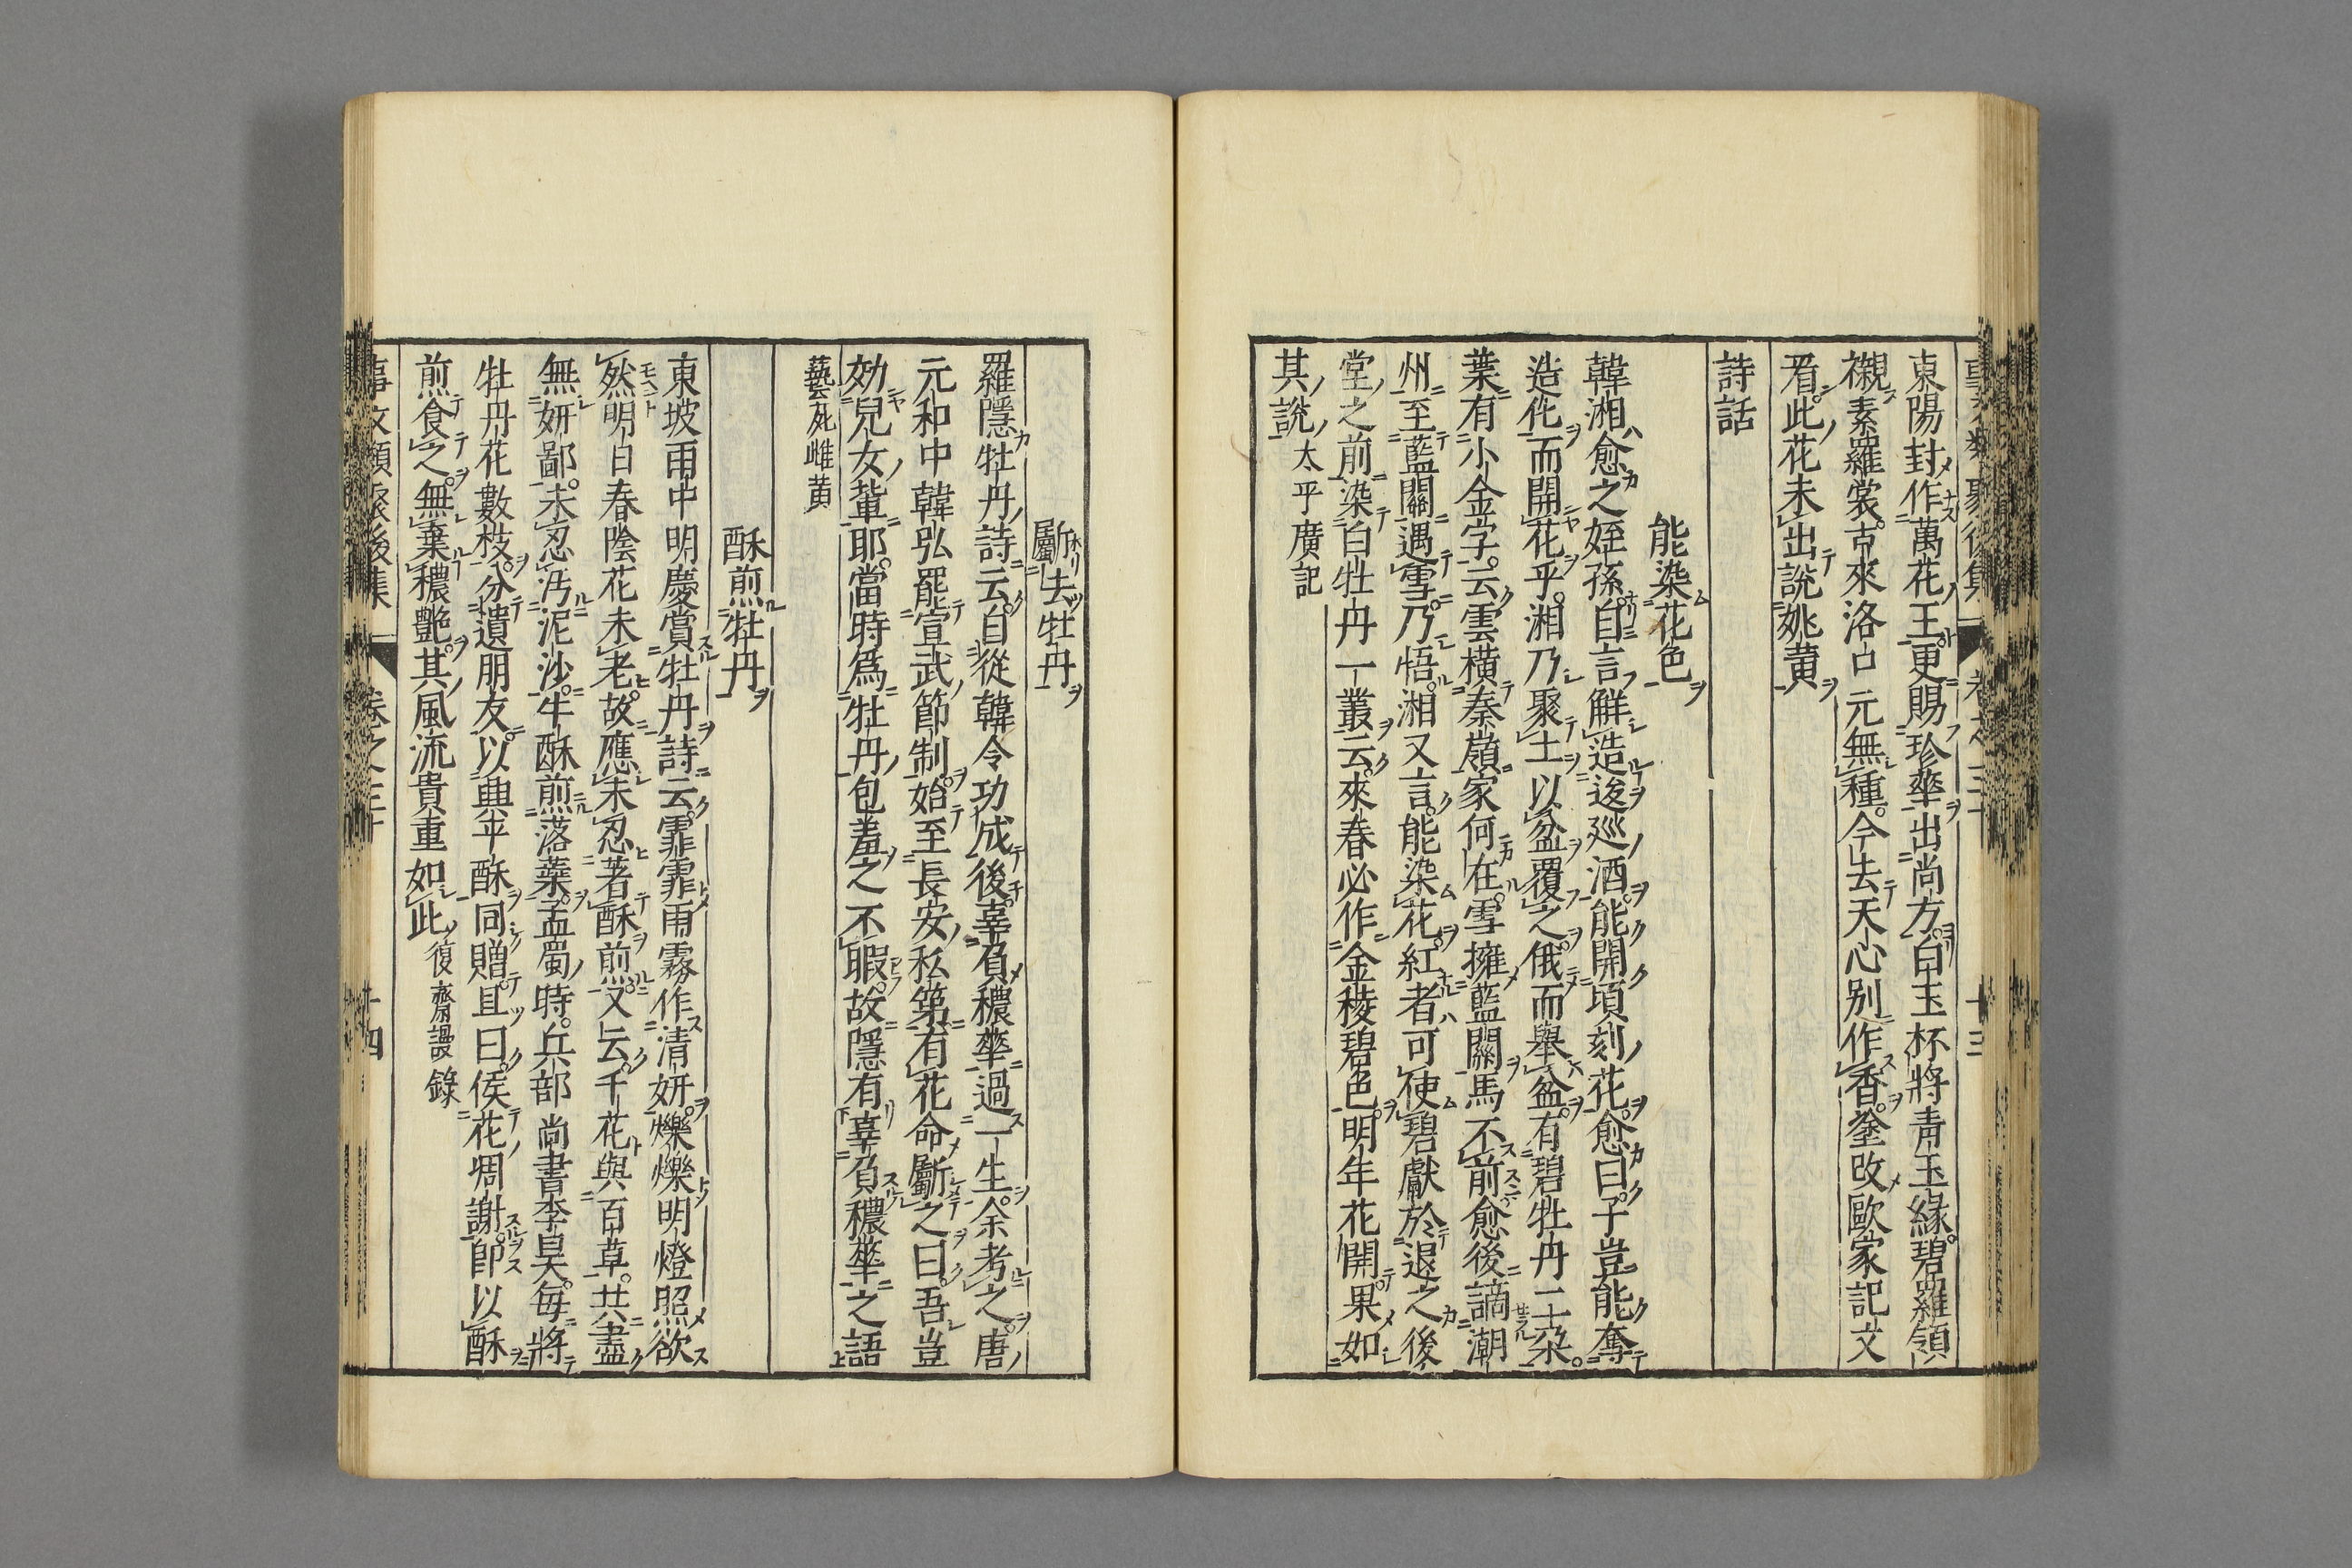 東陽封作萬花王更賜珍華出尚方白玉杯將青玉緣碧羅領
襯素羅裳古來洛口元無種今去天心別作香塗改歐家記文
看此花未出說姚黃
詩話
能染花色
韓湘愈之姪孫自言解造逡巡酒能開頃刻花愈曰子豈能奪
造化而開花乎湘乃聚土以盆覆之俄而舉盆有碧牡丹二朶
葉有小金字云雲橫秦嶺家何在雪擁藍關馬不前愈後謫潮
州至藍關遇雪乃悟湘又言能染花紅者可使碧獻於退之後
堂之前染白牡丹一叢云來春必作金稜碧色明年花開果如
其說太乎廣記
斸去牡丹
羅隱牡丹詩云自從韓令功成後辜負穠華過一生余考之唐
元和中韓弘罷宣武節制始至長安私第有花命斸之曰吾豈
効兒女輩耶當時爲牡丹包羞之不暇故隱有辜負穠華之語
藝苑雌黃
酥煎牡丹
東坡雨中明慶賞牡丹詩云霏霏雨霧作清妍爍爍明燈照欲
然明日春陰花未老故應未忍著酥煎又云千花與百草共盡
無妍鄙未忍汚泥沙牛酥煎落蘂孟蜀時兵部尚書李昊每將
牡丹花數枝分遺朋友以興平酥同贈且曰俟花凋謝卽以酥
煎食之無棄穠艷其風流貴重如此復齋謾錄
卷之三十
十四